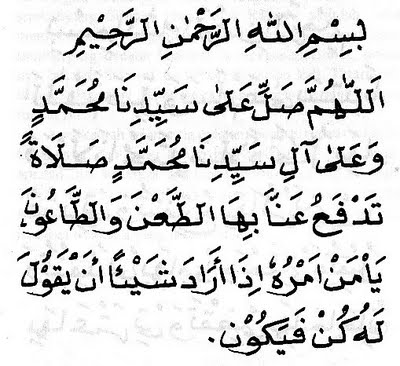 بِسْمِ اللهِ الرَّحْمٰنِ الرَّحِيْمِ
اَللّٰهُمَّ صَلِّ عَلٰى سَيِّدِنَا مُحَمَّدٍ
وَعَلٰى آلِ سَيِّدِنَا مُحَمَّدٍ صَلَاةً
تَدْفَعُ عَنَّا بِهَا الطَّعْنَ وَالطَّاعُونَ،
يَا مَنْ اَمْرُهُ اِذَا أَرَادَ شَيْئًا أَنْ يَقُوْلَ
لَهُ كُنْ فَيَكُوْنُ.